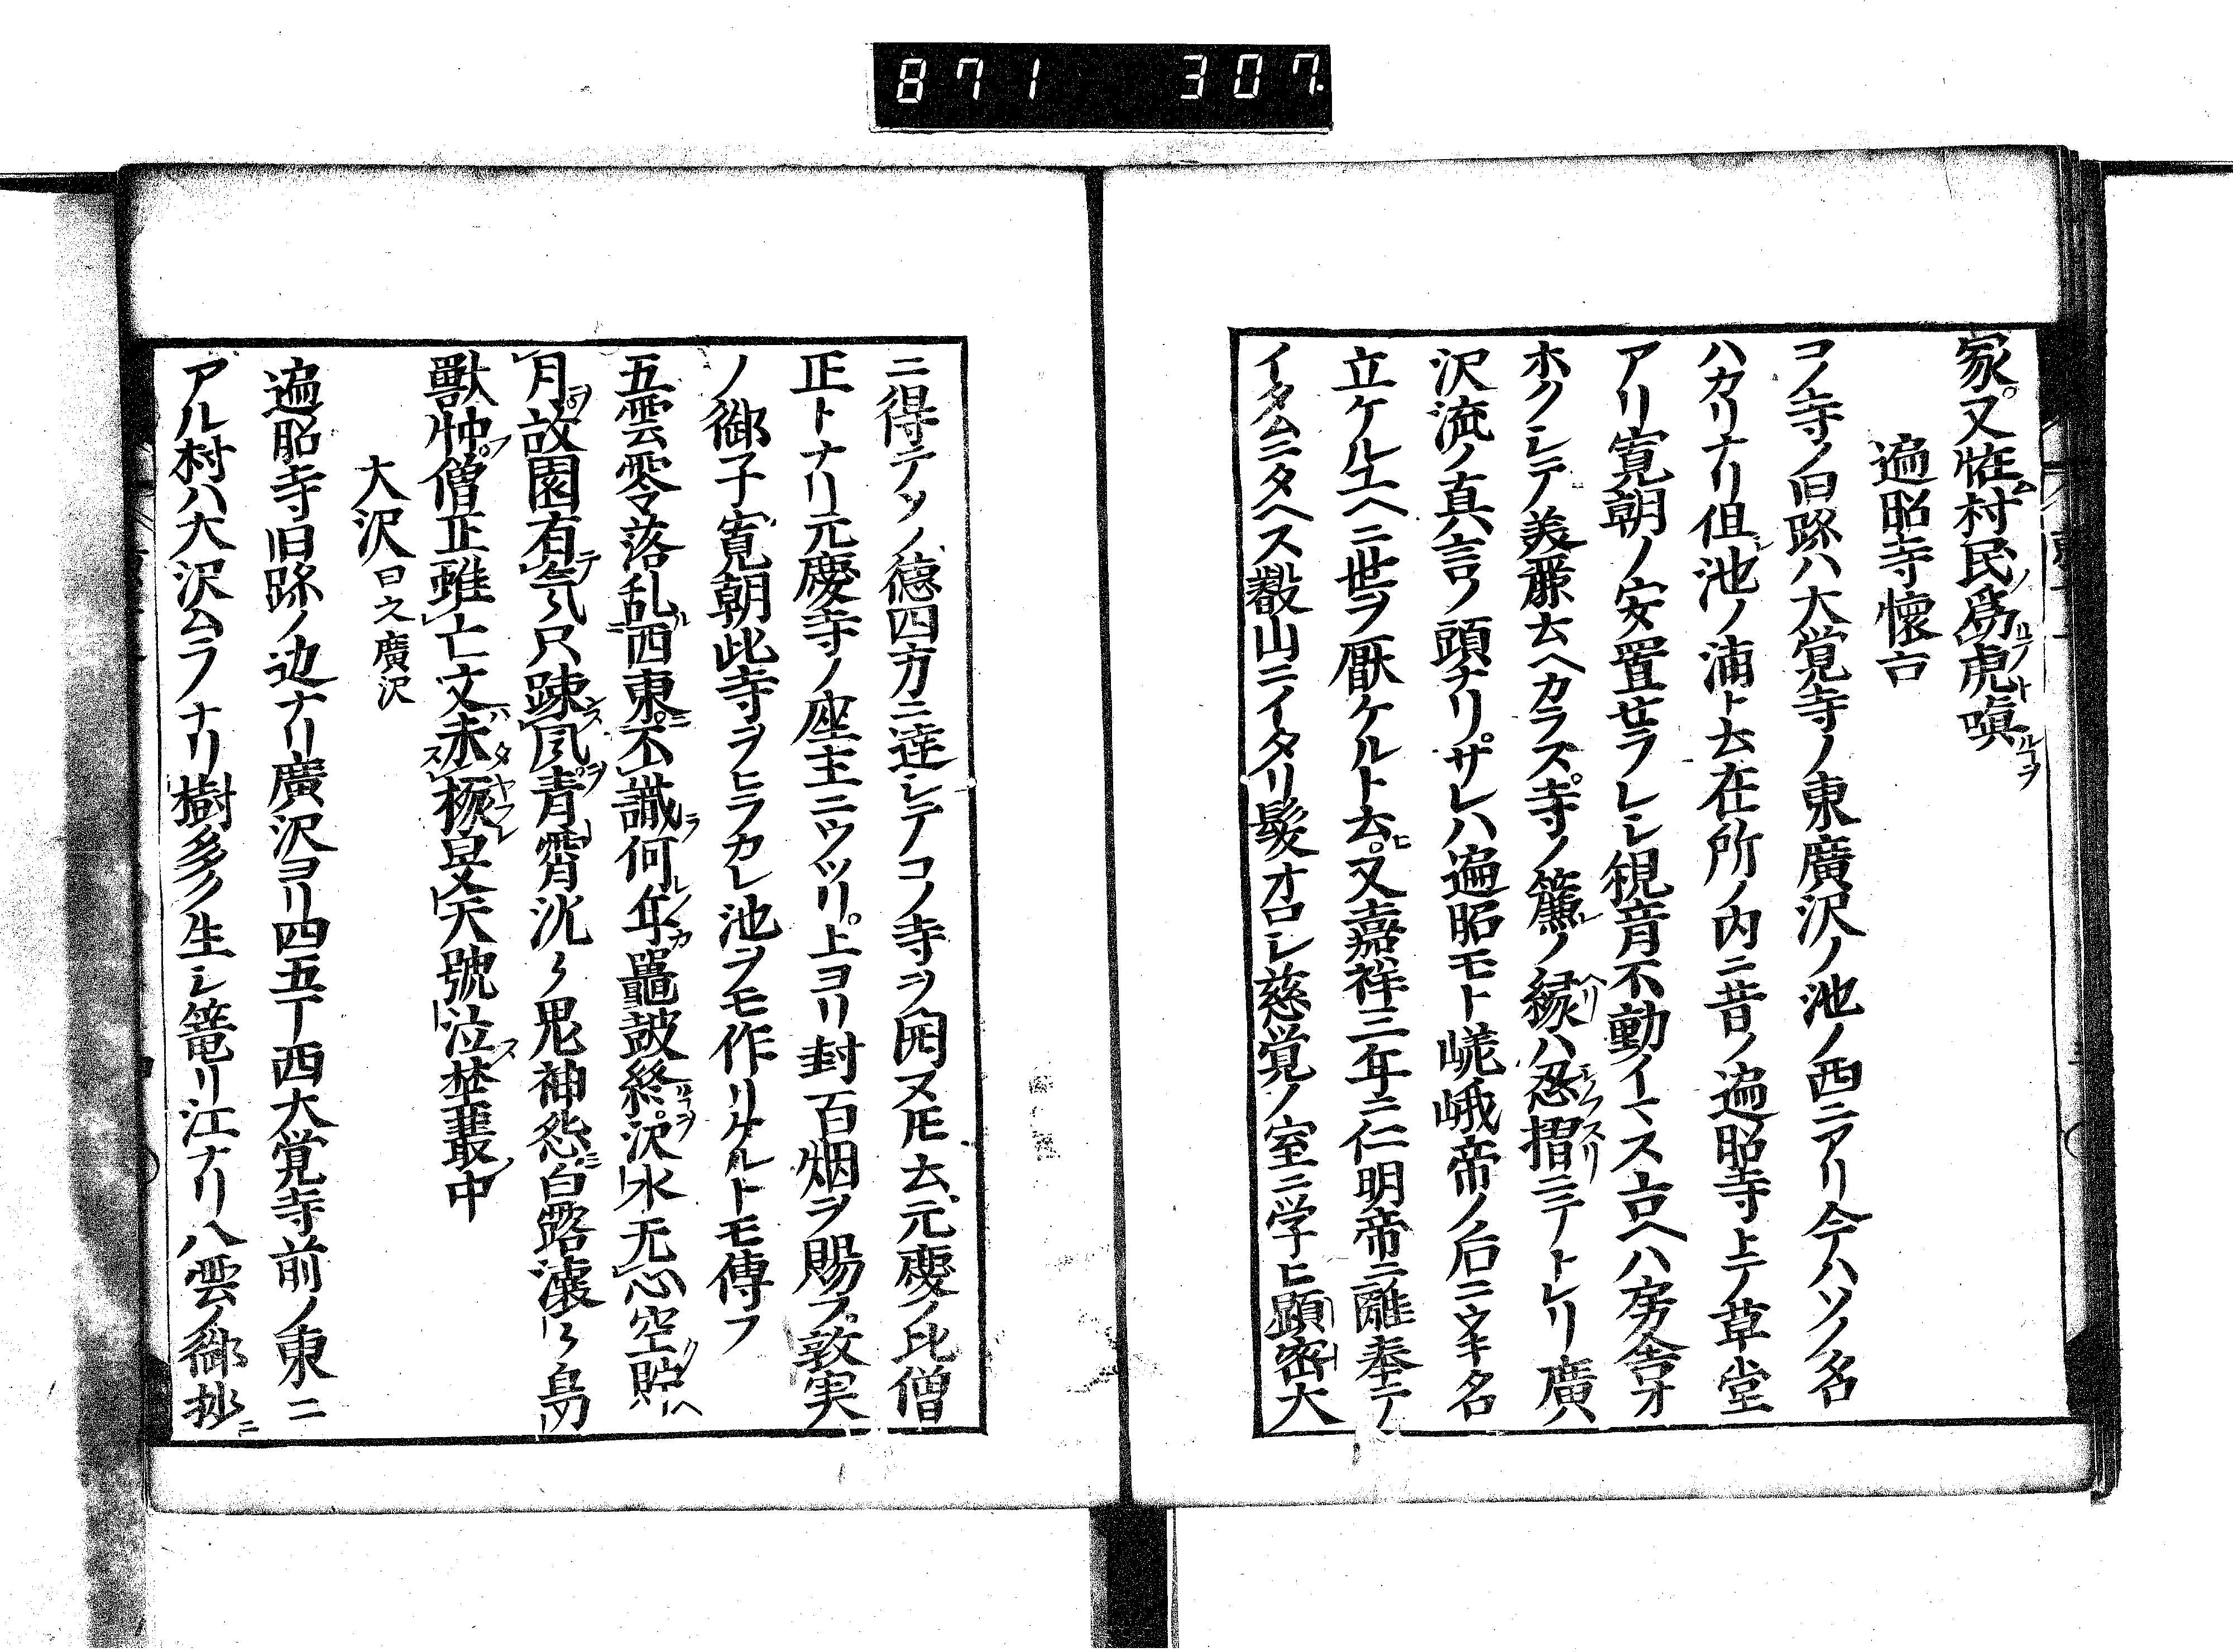 871 307
家又怪村民為虎嗔
遍昭寺懐古
コノ寺ノ旧跡ハ大覚寺ノ東廣沢ノ池ノ西ニアリ今ハソノ名
ハカリナリ但池ノ浦ト云在所ノ内ニ昔ノ遍昭寺トテ草堂
アリ寛朝ノ安置セラレシ観音不動イマス古ヘハ房舎オ
ホクシテ美麗云ヘカラス寺ノ簾ノ縁ハ忍摺ニテトレリ廣
沢流ノ真言ノ頭ナリサレハ遍昭モト嵯峨帝ノ后ニウキ名
立ケルユヘニ世ヲ厭ケルト云又嘉祥三年ニ仁明帝ニ離奉テ
イタムニタヘス叡山ニイタリ髪オロシ慈覚ノ室ニ学ヒ顕密大
ニ得テソノ徳四方ニ達シテコノ寺ヲ開ヌトモ云元慶ノ比僧
正トナリ元慶寺ノ座主ニウツリ上ヨリ封百烟ヲ賜フ敦実
ノ御子寛朝此寺ヲヒラカレ池ヲモ作リケルトモ傳フ
五雲零落乱西東不識何年鼉鼓終沢水无心空貯
月故園有気只疎風青霄沈々鬼神怨白露瀼々鳥
獣忡僧正雖亡文未 旻天號泣埜叢中
大沢 曰之廣沢
遍昭寺旧跡ノ辺ナリ廣沢ヨリ四五丁西大覚寺前ノ東ニ
アル村ハ大沢ムラナリ樹多ク生シ篭リ江ナリ八雲ノ御抄ニ